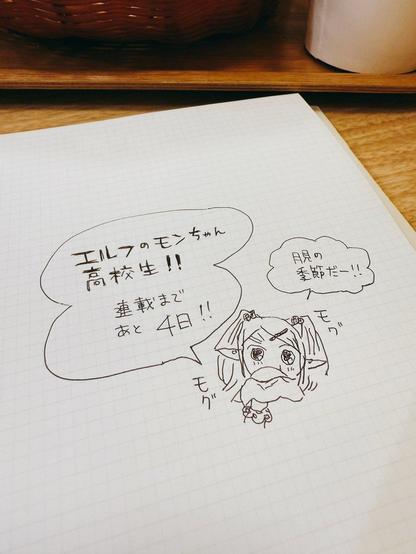 エルフのモンちゃん
高校生!!
連載まで
あと 4日!!
月見の
季節だー!!
モグ
モグ